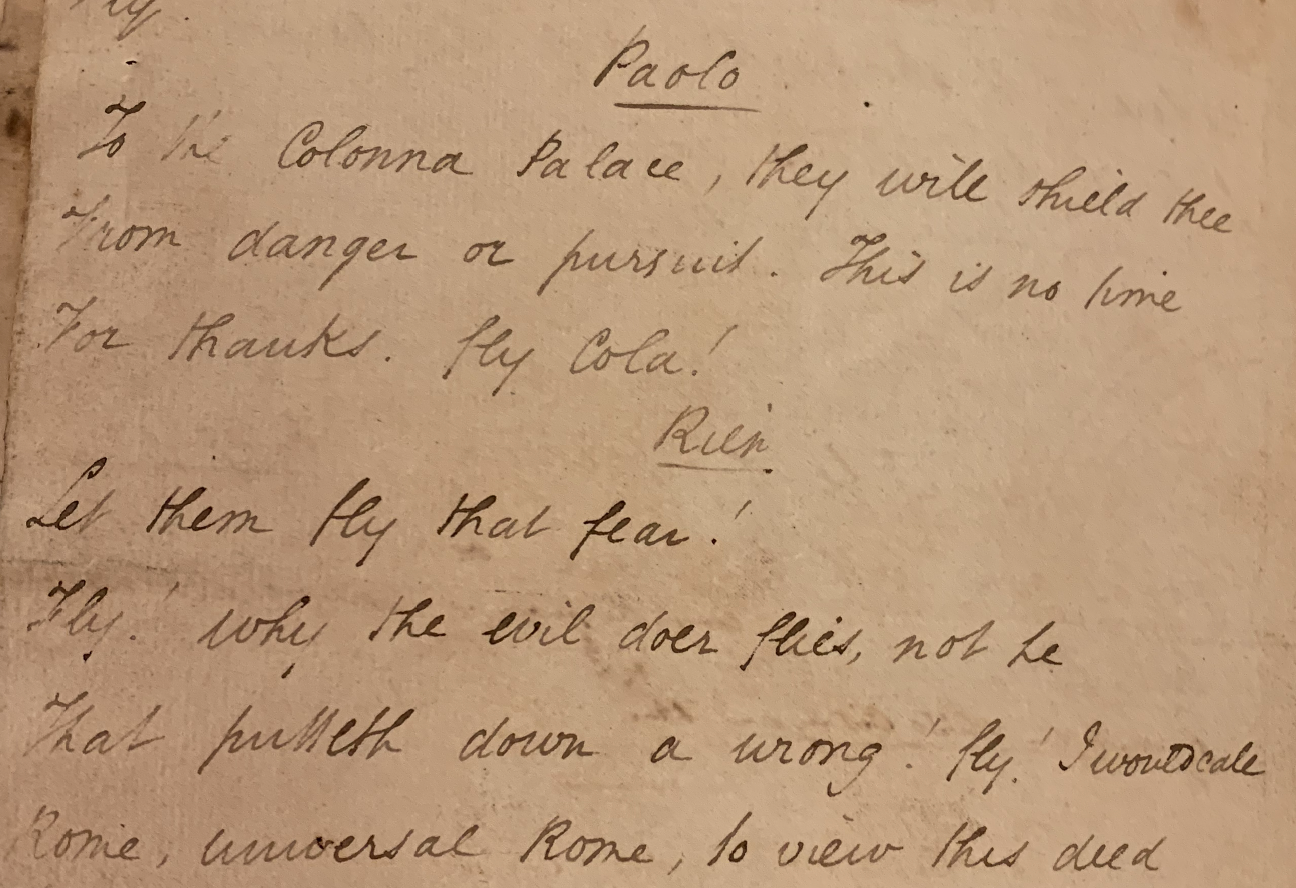 Paolo
To the Colonna Palace, they will shield thee
From danger or pursuit. This is no time
For thanks. fly Cola!
Rien.
Let them fly that fear!
Fly! why the evil doer flies, not he
That pulleth down a wrong! fly! I would call
Rome, universal Rome, to view this deed